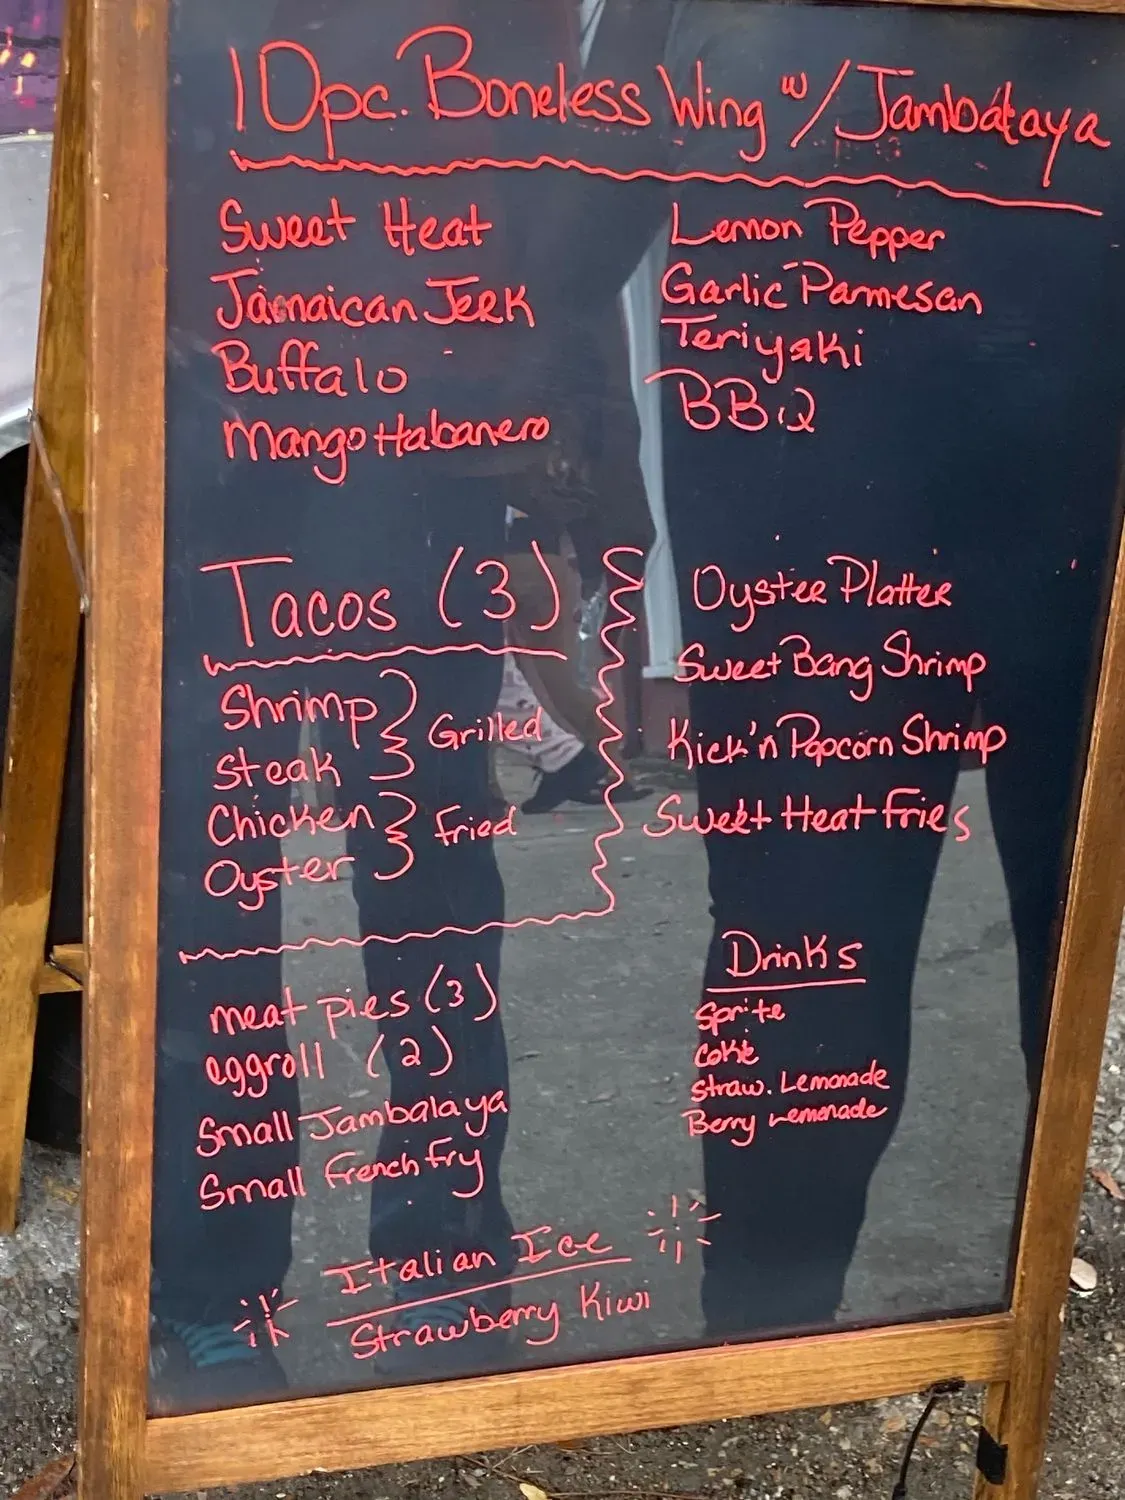 10pc. Boneless Wing w/ Jambalaya
Sweet Heat
Jamaican Jerk
Buffalo
Mango Habanero
Lemon Pepper
Garlic Parmesan
Teriyaki
BBQ
Tacos (3)
Shrimp
Steak
Grilled
Chicken
Oyster
fried
Oyster Platter
Sweet Bang Shrimp
Kick'n Popcorn Shrimp
Sweet Heat Fries
meat pies (3)
eggroll (2)
Small Jambalaya
Small french fry
Drinks
Sprite
Coke
Straw. Lemonade
Berry Lemonade
Italian Ice
Strawberry Kiwi